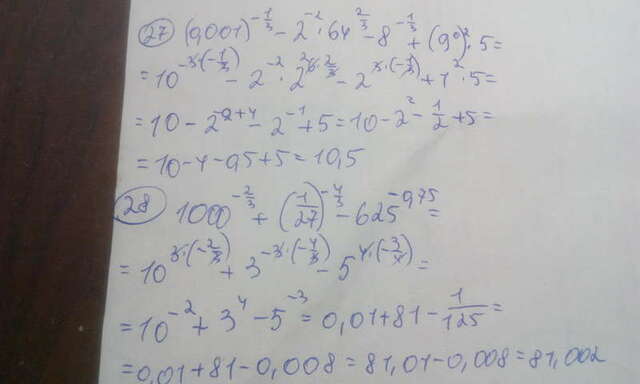 27) (0,001)^{-1/3} - 2^{-2} · 64^{2/3} - 8^{-1/3} + (9^0)^2 · 5 =
= 10^{-3·(-1/3)} - 2^{-2} · 2^{6·2/3} - 2^{3·(-1/3)} + 1^2 · 5 =
= 10 - 2^{-2+4} - 2^{-1} + 5 = 10 - 2^2 - 1/2 + 5 =
= 10 - 4 - 0,5 + 5 = 10,5
28) 1000^{-2/3} + (1/27)^{-4/3} - 625^{-0,75} =
= 10^{3·(-2/3)} + 3^{-3·(-4/3)} - 5^{4·(-3/4)} =
= 10^{-2} + 3^4 - 5^{-3} = 0,01 + 81 - 1/125 =
= 0,01 + 81 - 0,008 = 81,01 - 0,008 = 81,002